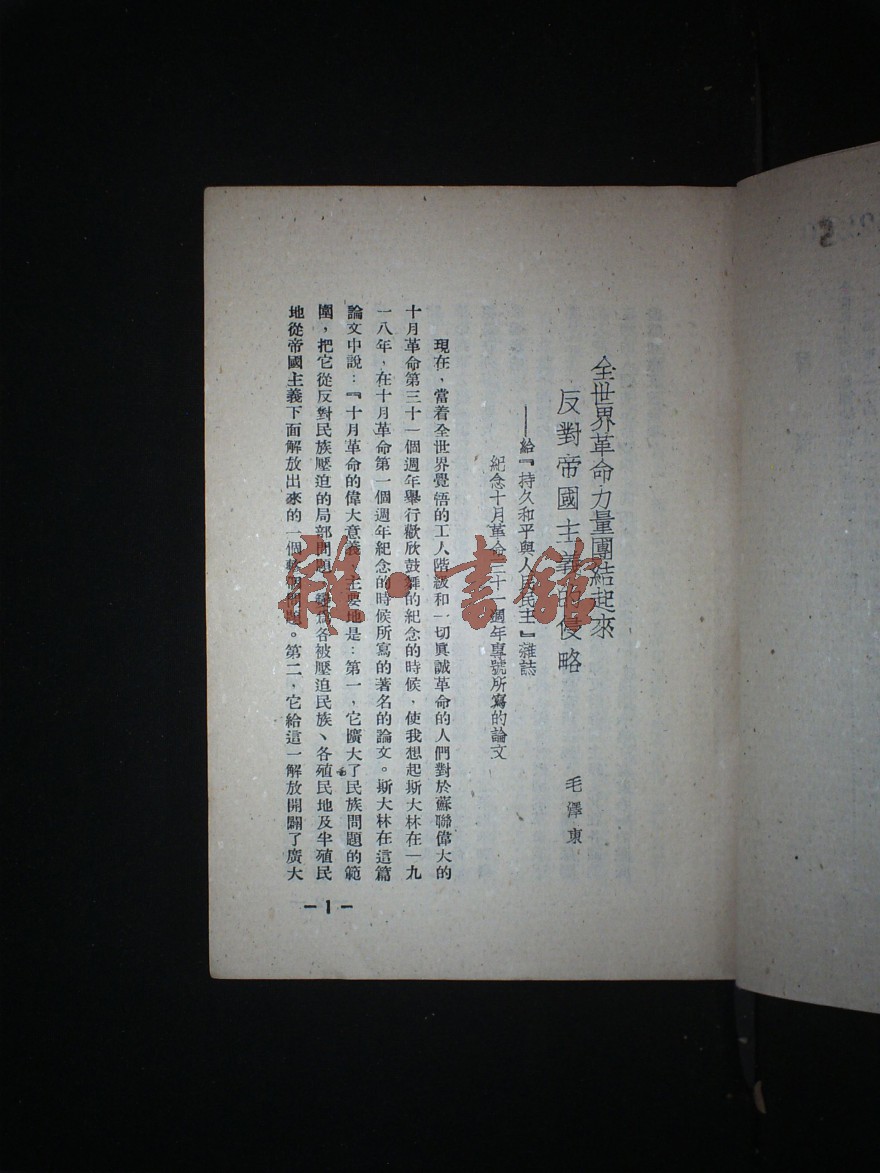 全世界革命力量團結起來
反對帝國主義的侵略
——給『持久和平與人民民主』雜誌
紀念十月革命三十一週年專號所寫的論文
毛澤東
現在，當着全世界覺悟的工人階級和一切眞誠革命的人們對於蘇聯偉大的
十月革命第三十一個週年舉行歡欣鼓舞的紀念的時候，使我想起斯大林在一九
一八年，在十月革命第一個週年紀念的時候所寫的著名的論文。斯大林在這篇
論文中說：『十月革命的偉大意義，主要地是：第一，它擴大了民族問題的範
圍，把它從反對民族壓迫的局部問題，爲各被壓迫民族、各殖民地及半殖民
地從帝國主義下面解放出來的一個問題。第二，它給這一解放開闢了廣大
-1-
雜·書館